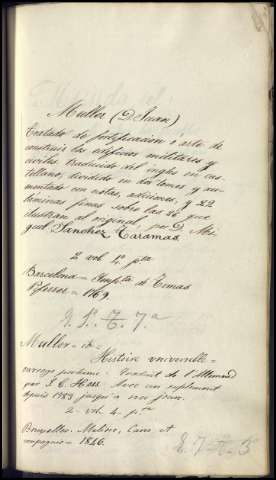 Muller (D. Juan)
Tratado de fortificacion o arte de
construir los edificios militares y
civiles traducido del ingles en cas-
tellano, dividido en dos tomos y au-
mentado con notas, adiciones, y 22
láminas finas sobre las 26 que
ilustran al original, por D. Mi-
guel Sanchez Taramas
2 vol 1º pta
Barcelona = Impta de Tomas
Piferrer = 1769
7ª
Muller = id =
Histoire universelle =
ouvrage posthume = Traduit de l'Allemand
par J. C. Hess. Avec un suplement
depuis 1783 jusqu'a nos jours.
2 = vol. 4. pta
Bruxelles. Meline, Cans, et
compagnie = 1846.